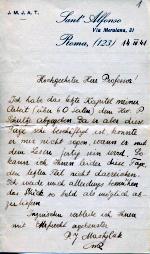 1
J. M. J. A. T.
Sant' Alfonso
Via Merulana, 31
Roma, (123) 14 IV 41
Hochgeehrter Herr Professor!
Ich habe das letzte Kapitel meiner
Arbeit (über 60 Seiten) dem Hw. P.
Schulz abgegeben. Da er aber diese
Tage sehr beschäftigt ist, konnte
er mir nicht sagen, wann er mit
dem Lesen fertig sein wird. So
kann ich Ihnen leider diese Tage
den letzten Teil nicht einreichen.
Ich werde mich allerdings bemühen
das Stück so bald als möglich
Inzwischen verbleibe ich Ihnen
mit Hochacht